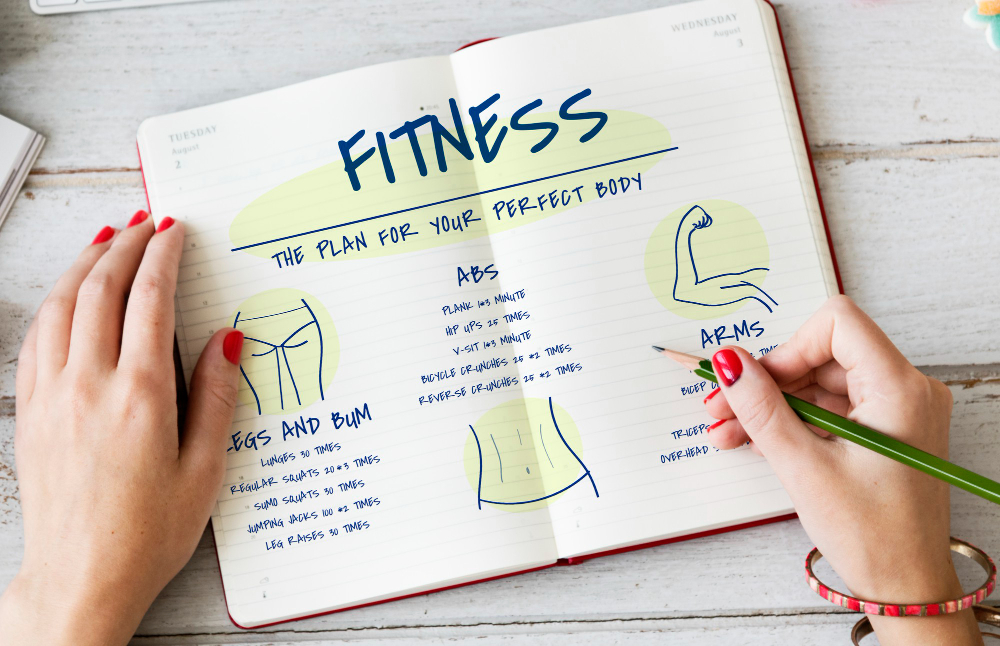 TUESDAY
August
2
WEDNESDAY
August
3
FITNESS
THE PLAN FOR YOUR PERFECT BODY
ABS
PLANK 1*3 MINUTE
HIP UPS 25 TIMES
V-SIT 1*3 MINUTE
BICYCLE CRUNCHES 25 *2 TIMES
REVERSE CRUNCHES 25 *2 TIMES
LEGS AND BUM
LUNGES 30 TIMES
REGULAR SQUATS 20*3 TIMES
SUMO SQUATS 30 TIMES
JUMPING JACKS 100 *2 TIMES
LEG RAISES 30 TIMES
ARMS
TIMES
BICEP
TRICEPS
OVERHEAD